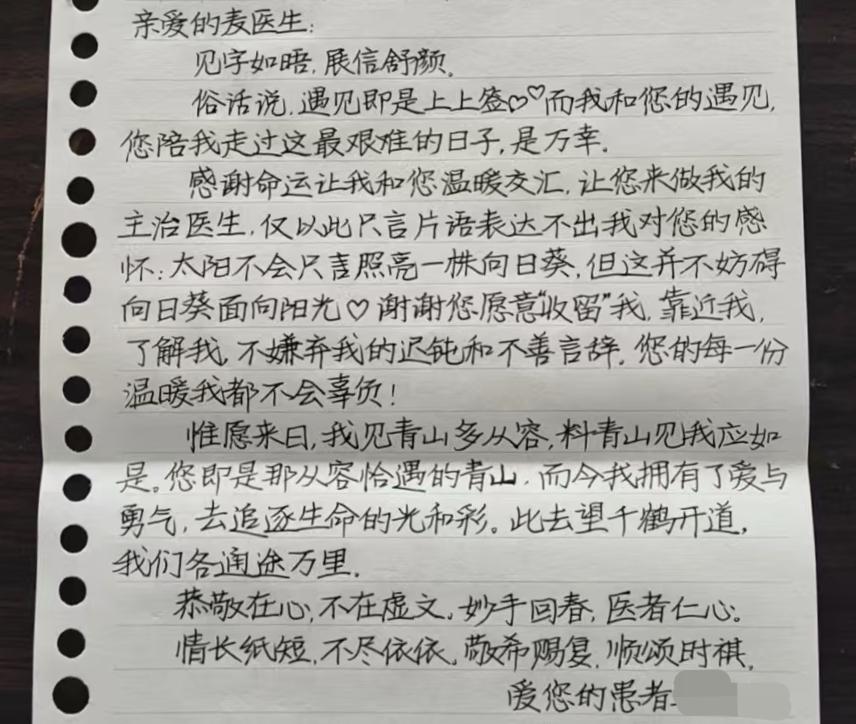 亲爱的麦医生:
见字如晤,展信舒颜。
俗话说,遇见即是上上签♡♡而我和您的遇见,
您陪我走过这最艰难的日子,是万幸。
感谢命运让我和您温暖交汇,让您来做我的
主治医生,仅以此只言片语表达不出我对您的感
怀:太阳不会只言照亮一株向日葵,但这并不妨碍
向日葵面向阳光♡谢谢您愿意“收留”我,靠近我,
了解我,不嫌弃我的迟钝和不善言辞,您的每一份
温暖我都不会辜负!
惟愿来日,我见青山多从容,料青山见我应如
是。您即是那从容恰遇的青山,而今我拥有了爱与
勇气,去追逐生命的光和彩。此去望千鹤开道,
我们各通途万里。
恭敬在心,不在虚文,妙手回春,医者仁心。
情长纸短,不尽依依,敬希赐复,顺颂时祺。
爱您的患者